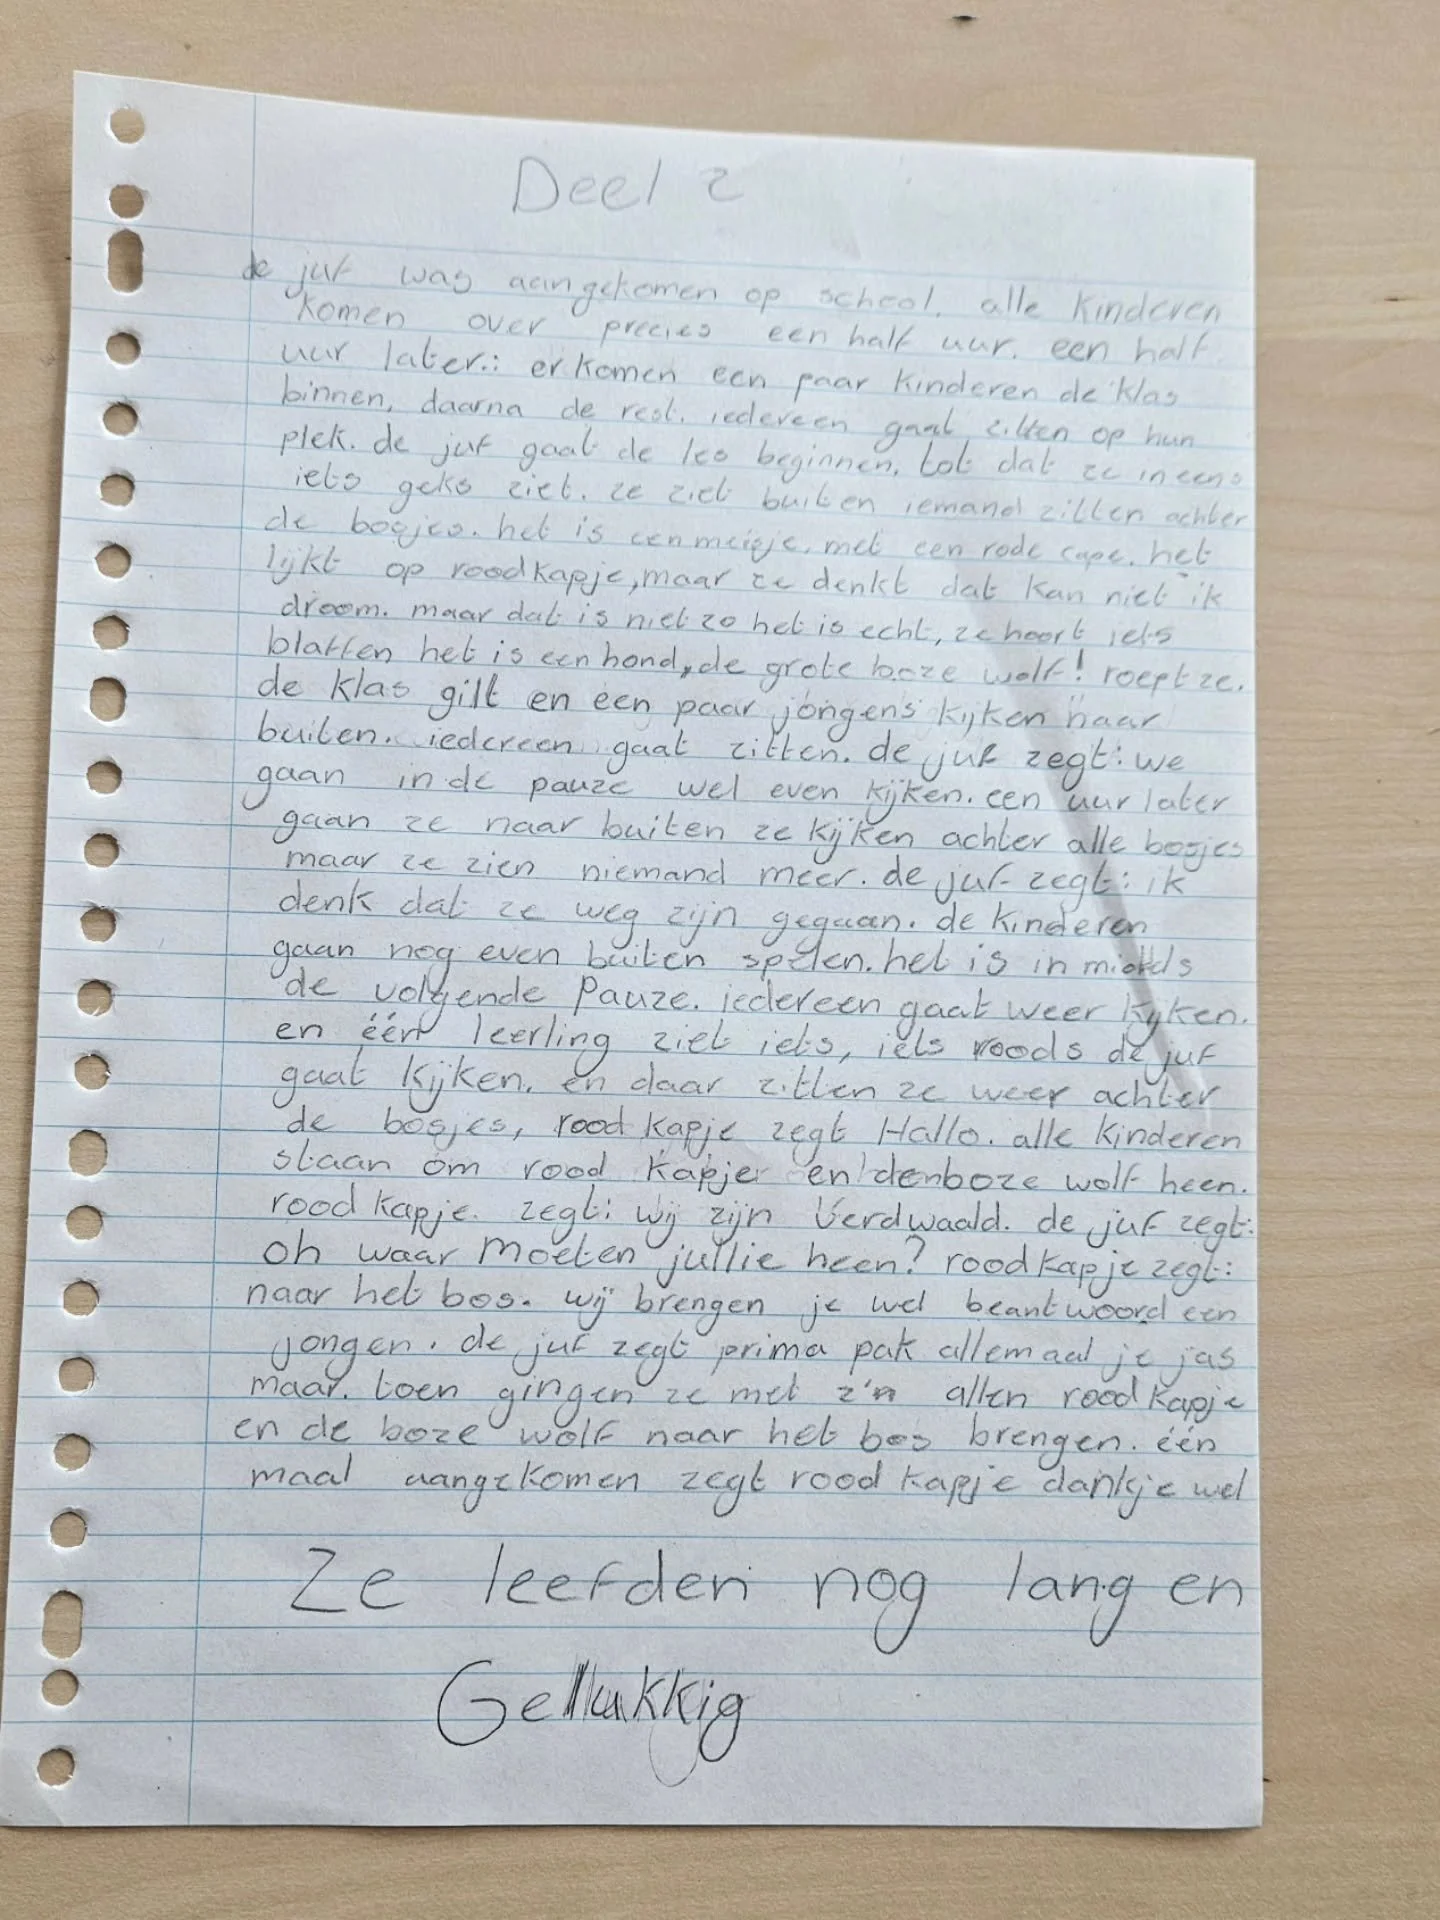 Deel 2
de juf was aangekomen op school. alle kinderen
komen over precies een half uur. een half
uur later.: er komen een paar kinderen de klas
binnen. daarna de rest. iedereen gaat zitten op hun
plek. de juf gaat de les beginnen. tot dat ze ineens
iets geks ziet. ze ziet buiten iemand zitten achter
de bosjes. het is een meisje. met een rode cape. het
lijkt op roodkapje, maar ze denkt dat kan niet ik
droom. maar dat is niet zo het is echt, ze hoort iets
blaffen het is een hond, de grote boze wolf! roept ze.
de klas gilt en een paar jongens kijken naar
buiten. iedereen gaat zitten. de juf zegt: we
gaan in de pauze wel even kijken. een uur later
gaan ze naar buiten ze kijken achter alle bosjes
maar ze zien niemand meer. de juf zegt: ik
denk dat ze weg zijn gegaan. de kinderen
gaan nog even buiten spelen. het is in
de volgende Pauze. iedereen gaat weer kijken.
en één leerling ziet iets, iets roods de juf
gaat kijken. en daar zitten ze weer achter
de bosjes, rood kapje zegt Hallo. alle kinderen
staan om rood kapje en boze wolf heen.
rood kapje. zegt: wij zijn Verdwaald. de juf zegt:
oh waar moeten jullie heen? roodkapje zegt:
naar het bos. wij brengen je wel beantwoord een
jongen. de juf zegt prima pak allemaal je jas
maar. toen gingen ze met z'n allen rood kapje
en de boze wolf naar het bos brengen. één
maal aangekomen zegt rood kapje dankje wel
Ze leefden nog lang en
Gelukkig